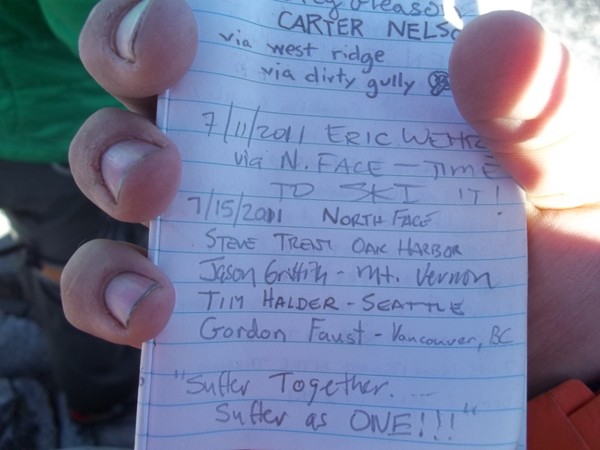 CARTER NELSO
via west ridge
via dirty gully
7/11/2011 ERIC WEHR
via N. FACE — TIME
TO SKI IT!
7/15/2011 NORTH FACE
STEVE TRENT OAK HARBOR
Jason Griffith - Mt. Vernon
TIM HALDER - SEATTLE
Gordon Faust - Vancouver, BC
"Suffer Together....
Suffer as ONE!!!"